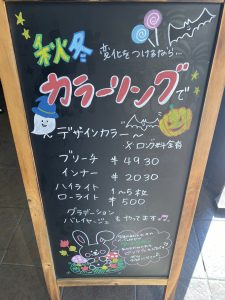 秋冬 変化をつけるなら…
カラーリングで
〜デザインカラー〜
※ロング料金有
ブリーチ ¥4930
インナー ¥2030
ハイライト 1〜5枚
ローライト ¥500
グラデーション
バレイヤージュ もやってます♪